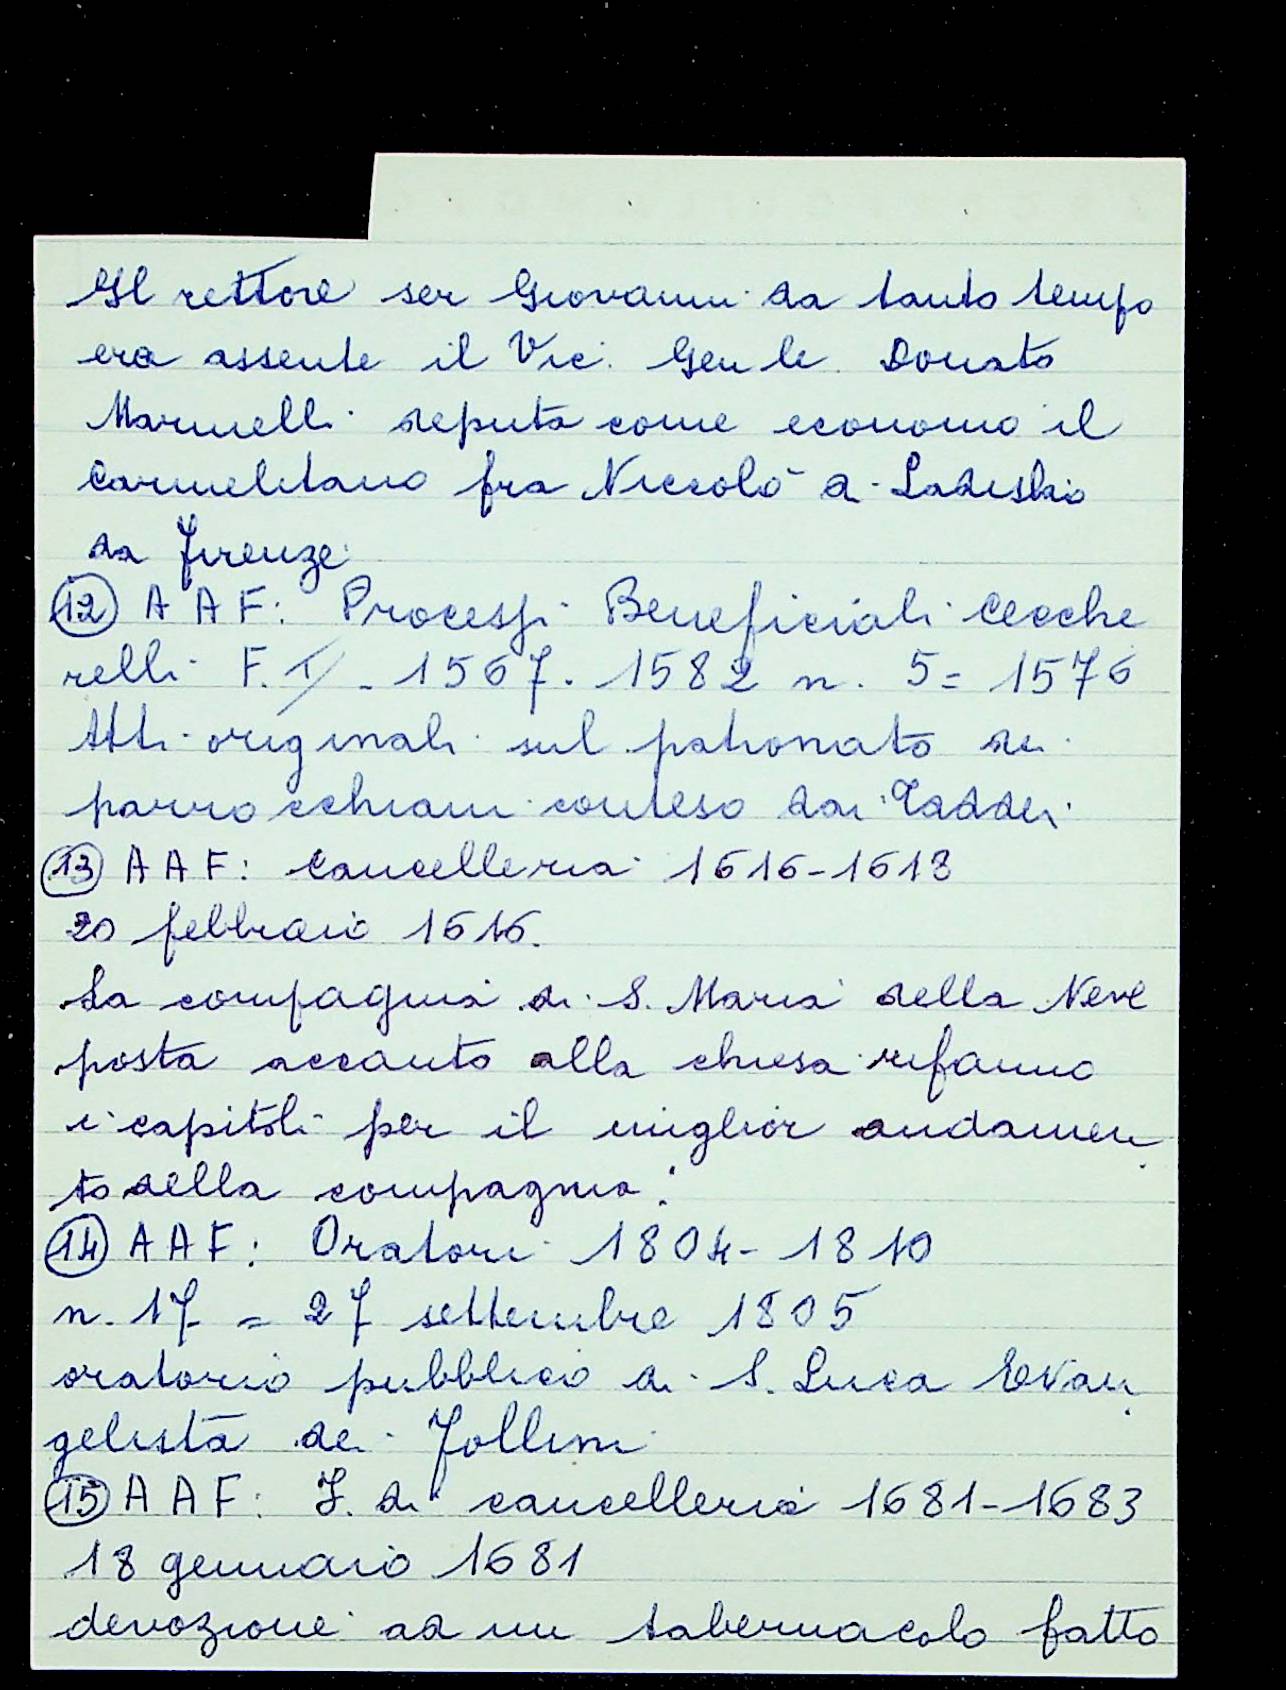 Il rettore ser Giovanni da tanto tempo
era assente il Vic. Gen le. Donato
Marinelli deputa come economo il
Carmelitano fra Niccolò d. Ladislao
da Firenze
(12) A A F: Processi Beneficiali Cecche
relli F. 1567. 1582 n. 5= 1576
Atti originali sul patronato dei
parrocchiani conteso dai Taddei
(13) A A F: Cancelleria 1616-1618
20 febbraio 1616.
La compagnia di S. Maria della Neve
posta accanto alla chiesa rifanno
i capitoli per il miglior andamen
to della compagnia.
(14) A A F: Oratori 1804-1810
n. 17 = 27 settembre 1805
oratorio pubblico di S. Luca Evan
gelista dei Follini
(15) A A F: F. di cancelleria 1681-1683
18 gennaio 1681
devozione ad un tabernacolo fatto